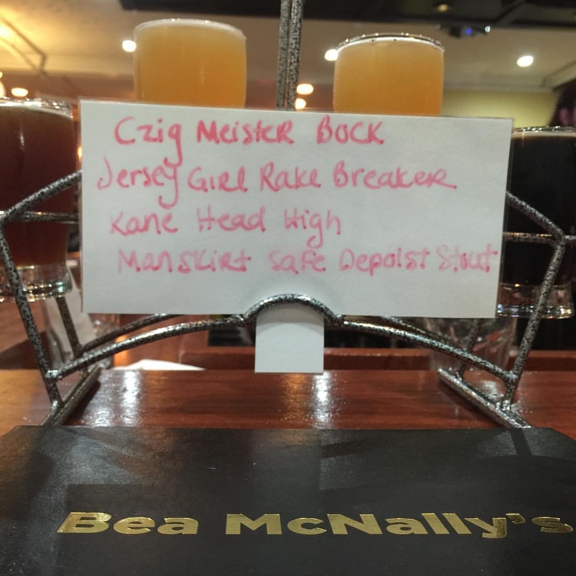 Czig Meister Bock
Jersey Girl Rake Breaker
Kane Head High
Manskirt Safe Depoist Stout
Bea McNally's